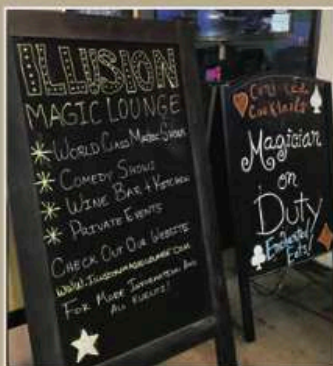 ILLUSION
MAGIC LOUNGE
WORLD CLASS MAGIC SHOWS
COMEDY SHOWS
WINE BAR + KITCHEN
PRIVATE EVENTS
CHECK OUT OUR WEBSITE
WWW.ILLUSIONMAGICLOUNGE.COM
FOR MORE INFORMATION AND
ALL EVENTS!
Cocktails
Magician
on
Duty
Enchanted
Eats!